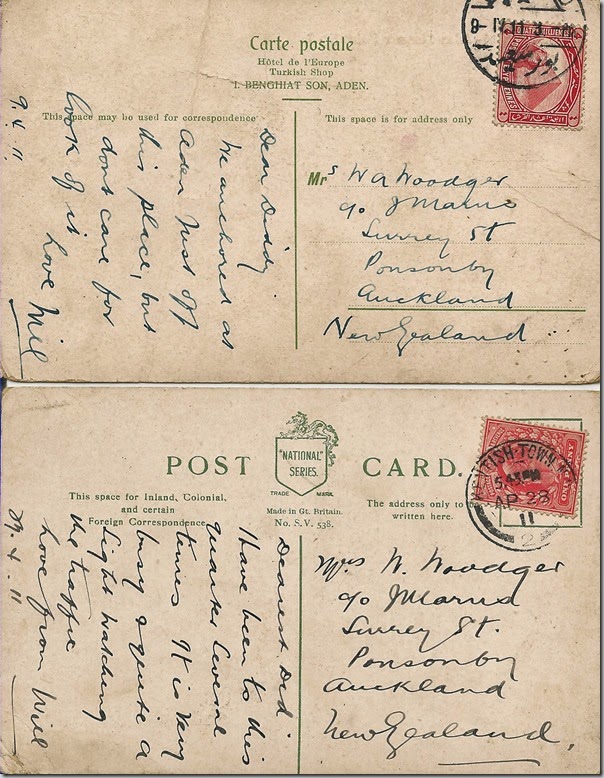 Carte postale
Hôtel de l'Europe
Turkish Shop
I. BENGHIAT SON, ADEN.
This space may be used for correspondence
This space is for address only
9.4.11.
Dear Diddy
We anchored at
Aden just off
this place, but
dont care for
look of it
Love Will
Mrs W A Woodger
c/o J Marris
Surrey St
Ponsonby
Auckland
New Zealand
9- IV 11
POST CARD.
"NATIONAL"
SERIES.
TRADE MARK.
Made in Gt. Britain.
No. S.V. 538.
This space for Inland, Colonial,
and certain
Foreign Correspondence.
The address only to
written here.
TISH·TOWN
5.45 PM
AP 28
11
2
Dearest Did
Have been to this
quarter several
times It is very
busy & quite a
sight watching
the traffic
Love from Will
.4.11
Mrs W. Woodger
c/o J Marris
Surrey St.
Ponsonby
Auckland
New Zealand,